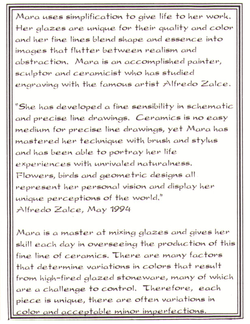 Mara uses simplification to give life to her work.
Her glazes are unique for their quality and color
and her fine lines blend shape and essence into
images that flutter between realism and
abstraction. Mara is an accomplished painter,
sculptor and ceramicist who has studied
engraving with the famous artist Alfredo Zalce.
"She has developed a fine sensibility in schematic
and precise line drawings. Ceramics is no easy
medium for precise line drawings, yet Mara has
mastered her technique with brush and stylus
and has been able to portray her life
experiences with unrivaled naturalness.
Flowers, birds and geometric designs all
represent her personal vision and display her
unique perceptions of the world."
Alfredo Zalce, May 1994
Mara is a master at mixing glazes and gives her
skill each day in overseeing the production of this
fine line of ceramics. There are many factors
that determine variations in colors that result
from high-fired glazed stoneware, many of which
are a challenge to control. Therefore, each
piece is unique, there are often variations in
color and acceptable minor imperfections.